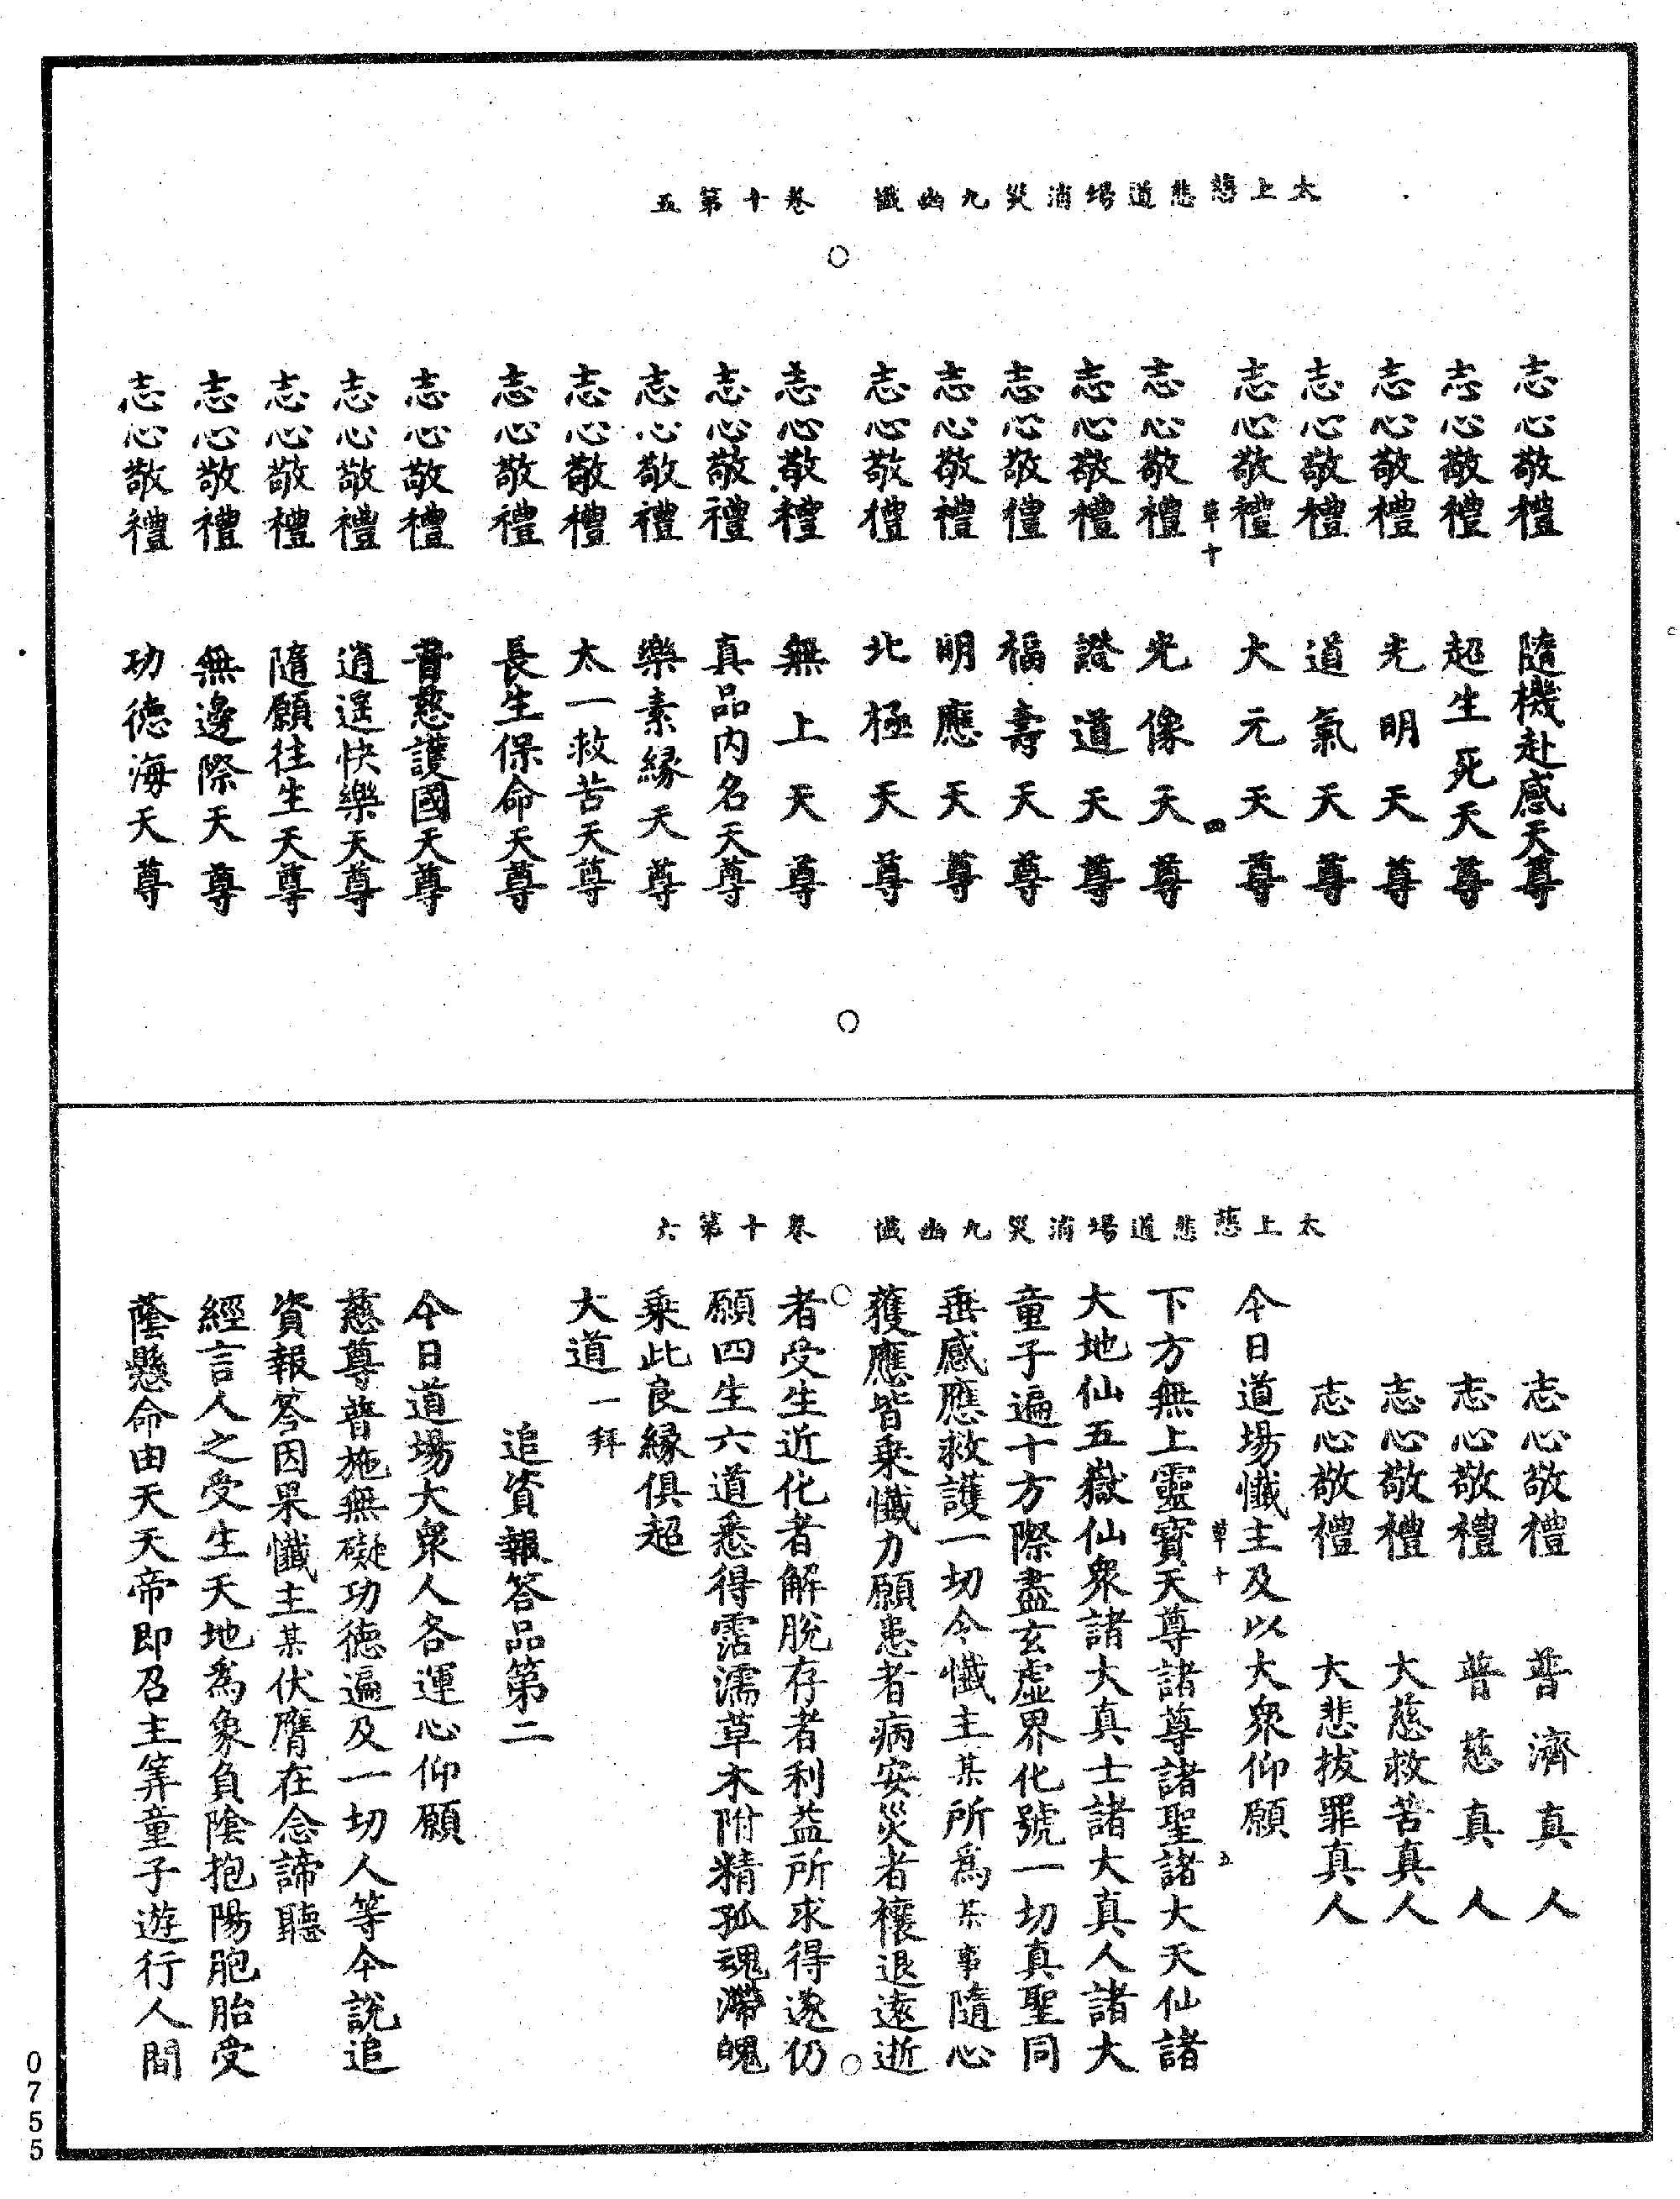 太上慈悲道場消災九幽懺　卷十第五
志心敬禮　隨機赴感天尊
志心敬禮　超生死天尊
志心敬禮　光明天尊
志心敬禮　道氣天尊
志心敬禮　大元天尊
草十　四
志心敬禮　光像天尊
志心敬禮　證道天尊
志心敬禮　福壽天尊
志心敬禮　明應天尊
志心敬禮　北極天尊
志心敬禮　無上天尊
志心敬禮　真品內名天尊
志心敬禮　樂素緣天尊
志心敬禮　太一救苦天尊
志心敬禮　長生保命天尊
志心敬禮　普慈護國天尊
志心敬禮　逍遙快樂天尊
志心敬禮　隨願往生天尊
志心敬禮　無邊際天尊
志心敬禮　功德海天尊
太上慈悲道場消災九幽懺　卷十第六
志心敬禮　普濟真人
志心敬禮　普慈真人
志心敬禮　大慈救苦真人
志心敬禮　大悲拔罪真人
今日道場懺主及以大衆仰願
草十　五
下方無上靈寶天尊諸尊諸聖諸大天仙諸
大地仙五嶽仙衆諸大真士諸大真人諸大
童子遍十方際盡玄虛界化號一切真聖同
垂感應救護一切今懺主某所爲某事隨心
獲應皆乗懺力願患者病安災者禳退遠逝
者受生近化者解脫存者利益所求得遂仍
願四生六道悉得霑濡草木附精孤魂滯魄
乗此良緣俱超
大道一拜
追資報答品第二
今日道場大衆人各運心仰願
慈尊普施無礙功德遍及一切人等今說追
資報答因果懺主某伏膺在念諦聽
經言人之受生天地爲象負陰抱陽胞胎受
蔭懸命由天天帝即召主筭童子遊行人間
0755